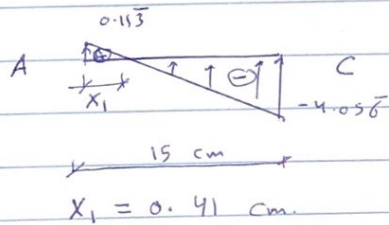 0.113̅
A ⊕ ⊖ C
X₁
-4.056̅
15 cm
X₁ = 0.41 cm.